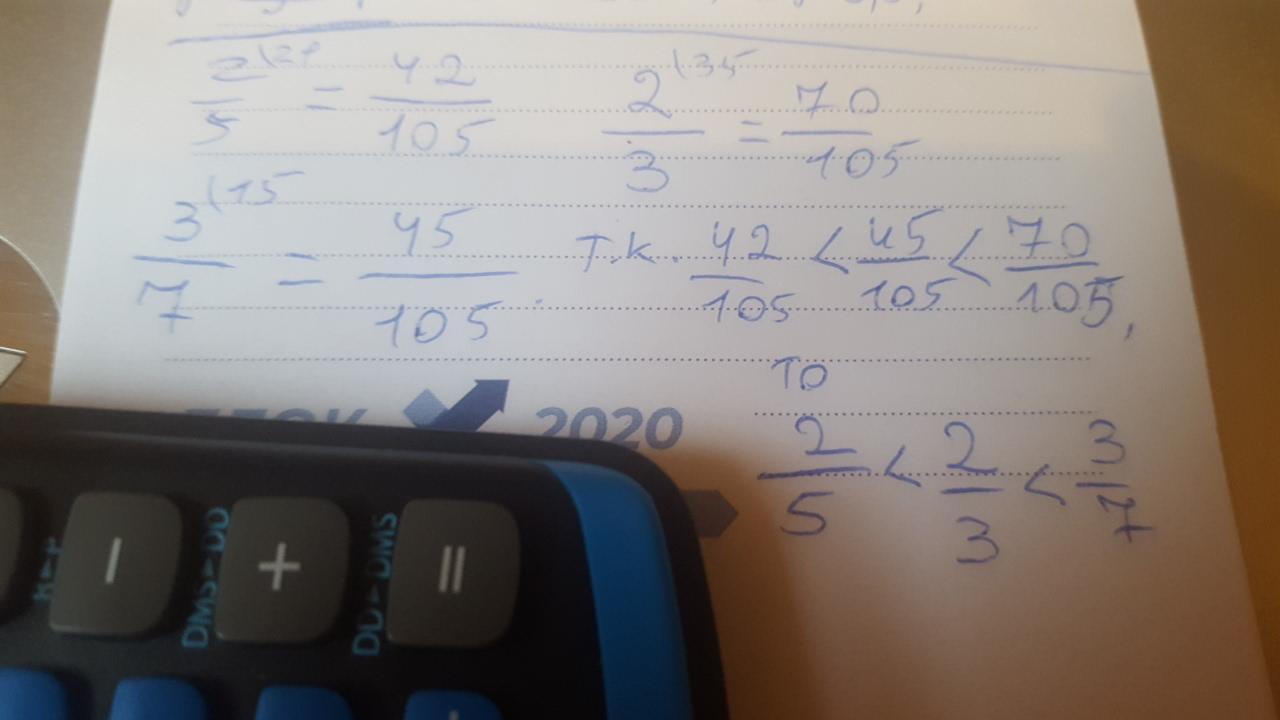 2\21/5 = 42/105 2\35/3 = 70/105
3\15/7 = 45/105. т.к. 42/105 < 45/105 < 70/105,
то
2020
2/5 < 2/3 < 3/7
− + =
DMS►DD DD►DMS